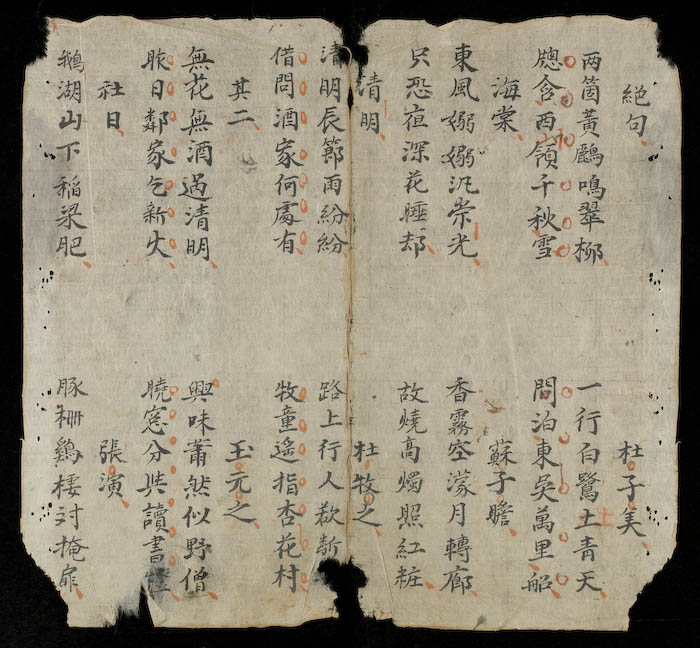 絕句 杜子美
两箇黃鸝鳴翠柳 一行白鷺上青天
牕含西嶺千秋雪 門泊東吳萬里船
海棠 蘇子瞻
東風嫋嫋汎崇光 香霧空濛月轉廊
只恐夜深花睡却 故燒高燭照紅粧
清明 杜牧之
清明辰節雨紛紛 路上行人欲斷
借問酒家何處有 牧童遙指杏花村
其二 王元之
無花無酒過清明 興味蕭然似野僧
昨日鄰家乞新火 曉窓分與讀書
社日 張演
鵝湖山下稻梁肥 豚柵鷄棲对掩扉